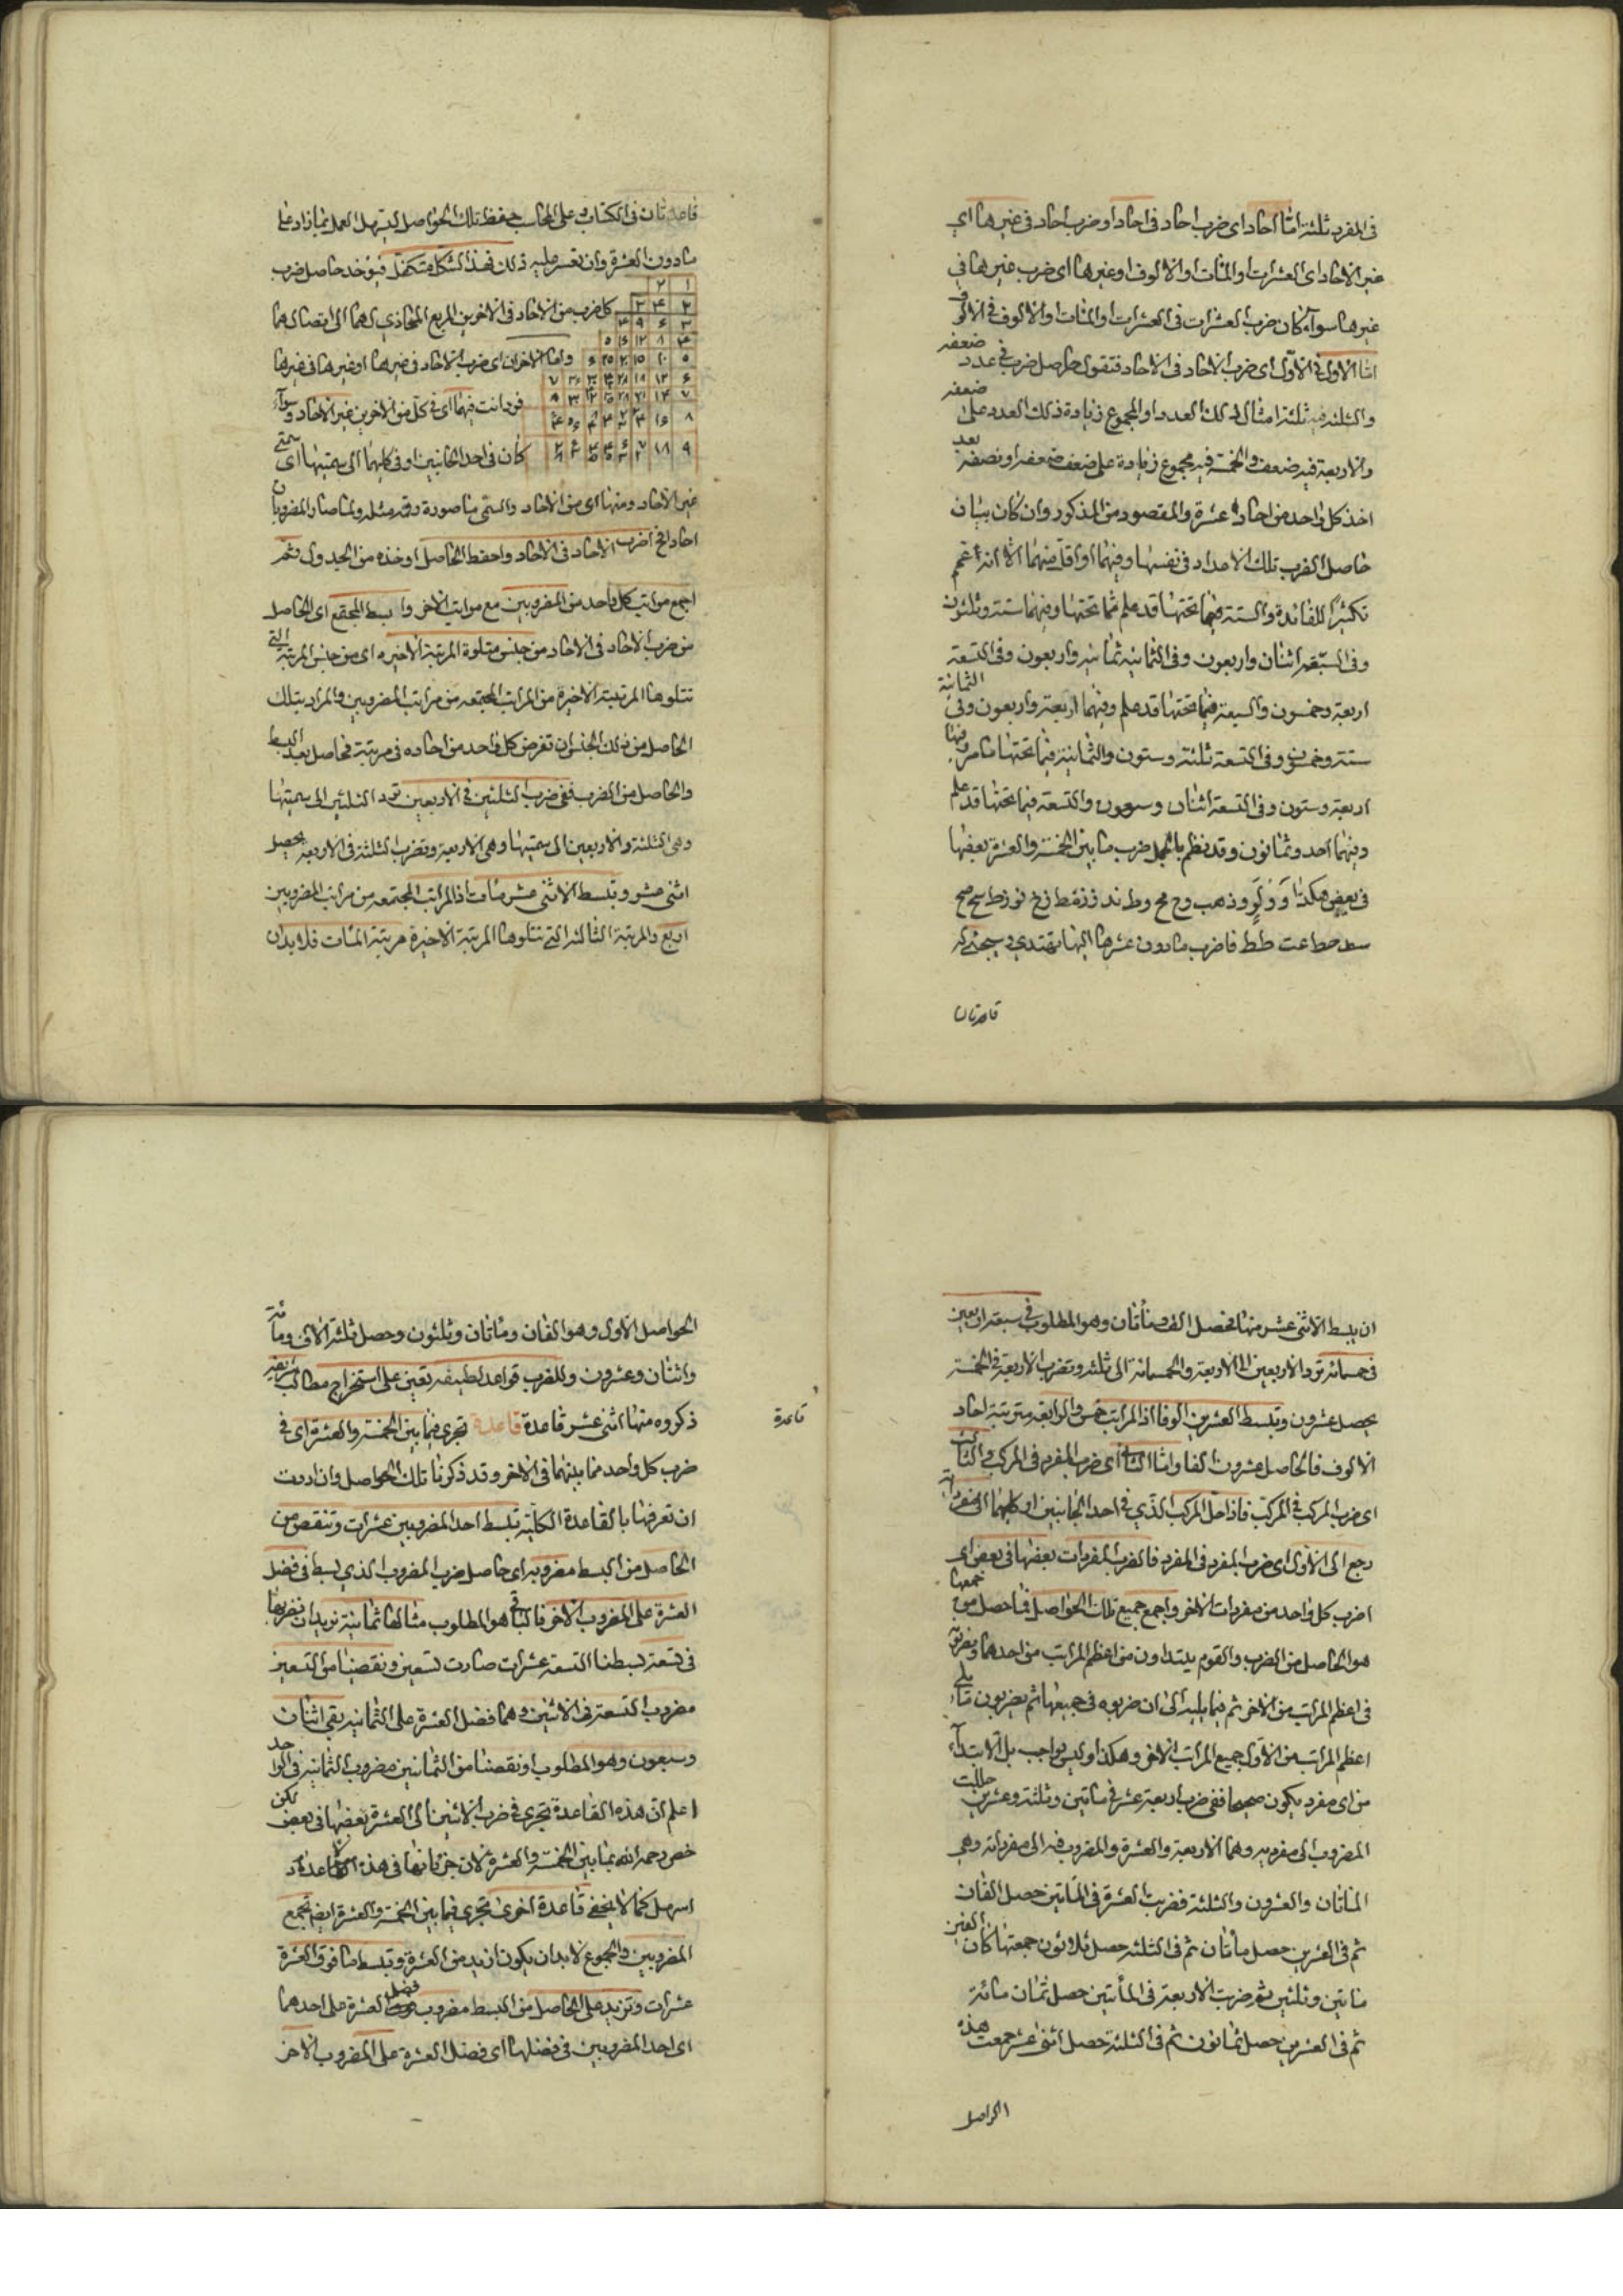 فى المفرد ثلثة اما احاد اى ضرب احاد فى احاد او ضرب احاد فى غيرها اى
غير الاحاد اى العشرات او المئات او الالوف او غيرها اى ضرب غيرها فى
غيرها سواء كان ضرب العشرات فى العشرات او المئات او الالوف فى الالوف
اما الاول فى الاول اى ضرب الاحاد فى الاحاد فتقول حاصل ضرب فى عدد ضعفه
والثلثة فيه ثلثة امثال ذلك العدد او المجموع زيادة ذلك العدد على ضعفه
والاربعة فيه ضعف والخمسة فيه مجموع زيادة على ضعف ضعفه او نصفه بعد
اخذ كل واحد من احاده عشرة والمقصود من المذكور وان كان بيان
حاصل الضرب تلك الاعداد فى نفسها وفيما او اقل منهما الا انه اعم
تكثيرا للفائدة والستة فيما تحتها قد علم مما تحتها وفيهما ستة وثلثون
وفى السبعة اثنان واربعون وفى الثمانية ثمانية واربعون وفى التسعة
اربعة وخمسون والسبعة فيما تحتها قد علم وفيهما اربعة واربعون وفى الثمانية
ستة وخمسون وفى التسعة ثلثة وستون والثمانية فيما تحتها ما مر وفيها
اربعة وستون وفى التسعة اثنان وسبعون والتسعة فيما تحتها قد علم
وفيهما احد وثمانون وقد نظم بالجمل ضرب ما بين الخمسة والعشرة بعضها
فى بعض هكذا
فاضرب ما دون عشرها اليها تهتدى وسيجئ له
قاعدتان
قاعدتان فى الكتاب وعلى المحاسب حفظ تلك الحواصل ليسهل العمل بما زاد على
ما دون العشرة وان تعسر عليه ذلك فهذا الشكل متكفل فيؤخذ حاصل ضرب
كل ضرب من الاحاد فى الاخر من المربع المحاذى لهما الى اتصالهما
واما الاخران اى ضرب الاحاد فى غيرها او غيرها فى غيرها
فرد انت فيهما اى فى كل من الاخرين غير الاحاد سواء
كان فى احد الجانبين او فى كليهما الى سميتها اى سمتى
١ ٢
٢ ۴ ٣
٣ ۶ ٩ ۴
۴ ٨ ١٢ ١۶ ٥
٥ ١٠ ١٥ ٢٠ ٢٥ ۶
غير الاحاد ومنها اى من الاحاد والسمى ما صورة رقمه مثله ولما صار المضروبان
احادا فح اضرب الاحاد فى الاحاد واحفظ الحاصل او خذه من الجدول ثم
اجمع مراتب كل واحد من المضروبين مع مراتب الاخر وابسط المجتمع اى الحاصل
من ضرب الاحاد فى الاحاد من جنس متلوة المرتبة الاخيرة اى من جنس المرتبة التى
تتلوها المرتبة الاخيرة من المراتب المجتمعه من مراتب المضروبين والمراد بتلك
الحاصل من ذلك الجنس ان تفرض كل واحد من احاده فى مرتبة فحاصل بعد البسط
والحاصل من الضرب ففى ضرب الثلثين فى الاربعين ترد الثلثين الى سميتها
وهى الثلثة والاربعين الى سميتها وهى الاربعة وتضرب الثلثة فى الاربعة يحصل
اثنى عشر وتبسط الاثنى عشر مئات اذ المراتب المجتمعه من مراتب المضروبين
اربع والمرتبة الثالثة التى تتلوها المرتبة الاخيرة مرتبة المئات فلا بد ان
ان يبسط الاثنى عشر منها فحصل الف ومائتان وهو المطلوب فى سبعة اربعين
فى خمسمائة ترد الاربعين الى الاربعة والخمسمائة الى ثلثة وتضرب الاربعة فى الخمسة
يحصل عشرون وتبسط العشرين الوفا اذ المراتب خمس والرابعة مرتبة احاد
الالوف فالحاصل عشرون الفا واما الثانى اى ضرب المفرد فى المركب والثالث
اى ضرب المركب فى المركب فاذا حل المركب الذى فى احد الجانبين او كليهما الى مفرداته
رجع الى الاول اى ضرب المفرد فى المفرد فاضرب المفردات بعضها فى بعض اى
اضرب كل واحد من مفردات الاخر واجمع جميع تلك الحواصل فما حصل من جمعها
هو الحاصل من الضرب والقوم يبتداون من اعظم المراتب من احدهما ويضربونه
فى اعظم المراتب من الاخر ثم فيما يليه الى ان ضربوه فى جميعها ثم يضربون ما يلى
اعظم المراتب من الاول جميع المراتب الاخر وهكذا وليس بواجب بل الابتداء
من اى مفرد يكون صحيحا ففى ضرب اربعة عشر فى مائتين وثلثة وعشرين حللت
المضروب الى مفرديه وهما الاربعة والعشرة والمضروب فيه الى مفرداته وهى
المائتان والعشرون والثلثة فضربت العشرة فى المائتين حصل الفان
ثم فى العشرين حصل مائتان ثم فى الثلثة حصل ثلاثون جمعتها كان الفين
مائتين وثلثين ثم ضربت الاربعة فى المأتين حصل ثمان مائة
ثم فى العشرين حصل ثمانون ثم فى الثلثة حصل اثنى عشر جمعت هذه
الحواصل
الحواصل الاول وهو الفان ومائتان وثلثون وحصل ثلثة الاف ومائة
واثنان وعشرون وللضرب قواعد لطيفه تعين على استخراج مطالب شريفه
ذكروه منها اثنى عشر قاعدة قاعدة تجرى فيما بين الخمسة والعشرة اى فى
قاعدة
ضرب كل واحد مما بينهما فى الاخر وقد ذكرنا تلك الحواصل وان اردت
ان تعرفها بالقاعدة الكلية تبسط احد المضروبين عشرات وتنقص من
الحاصل من البسط مضروبه اى حاصل ضرب المضروب الذى بسط فى فضل
العشرة على المضروب الاخر فالباقى هو المطلوب مثالها ثمانية نريد ان نضربها
فى تسعة بسطنا التسعة عشرات صارت تسعين ونقصنا من التسعين
مضروب التسعة فى الاثنين وهما فضل العشرة على الثمانية بقى اثنان
وسبعون وهو المطلوب او نقصنا من الثمانين مضروب الثمانية فى الواحد
اعلم ان هذه القاعدة تجرى فى ضرب الاثنين الى العشرة بعضها فى بعض لكن
خص رحمه الله بما بين الخمسة والعشرة لان جريانها فى هذه
اسهل كما لا يخفى قاعدة اخرى تجرى فيما بين الخمسة والعشرة ايضا تجمع
المضروبين والمجموع لا بد ان يكون ازيد من العشرة وتبسط ما فوق العشرة
عشرات وتزيد على الحاصل من البسط مضروب فضل العشرة على احدهما
اى احد المضروبين فى فضلها اى فضل العشرة على المضروب الاخر